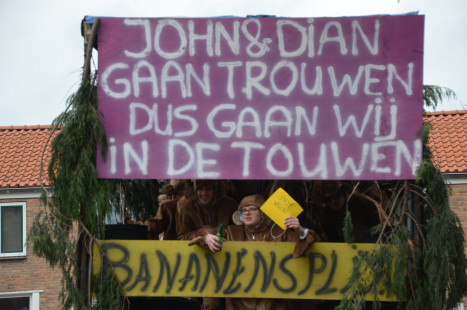 JOHN & DIAN
GAAN TROUWEN
DUS GAAN WIJ
iN DE TOUWEN
BANANENSPLiT